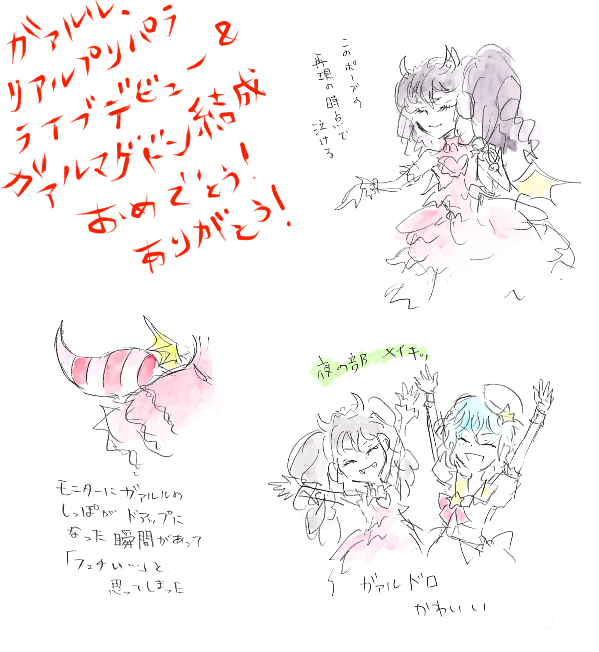 ガァルル、
リアルプリパラ
ライブデビュー&
ガァルマゲドン結成
おめでとう!
ありがとう!
このポーズの
再現の時点で
泣ける
モニターにガァルルの
しっぽがドアップに
なった瞬間があって
「フェチい…」と
思ってしまった
夜の部 メイキッ
ガァルドロ
かわいい